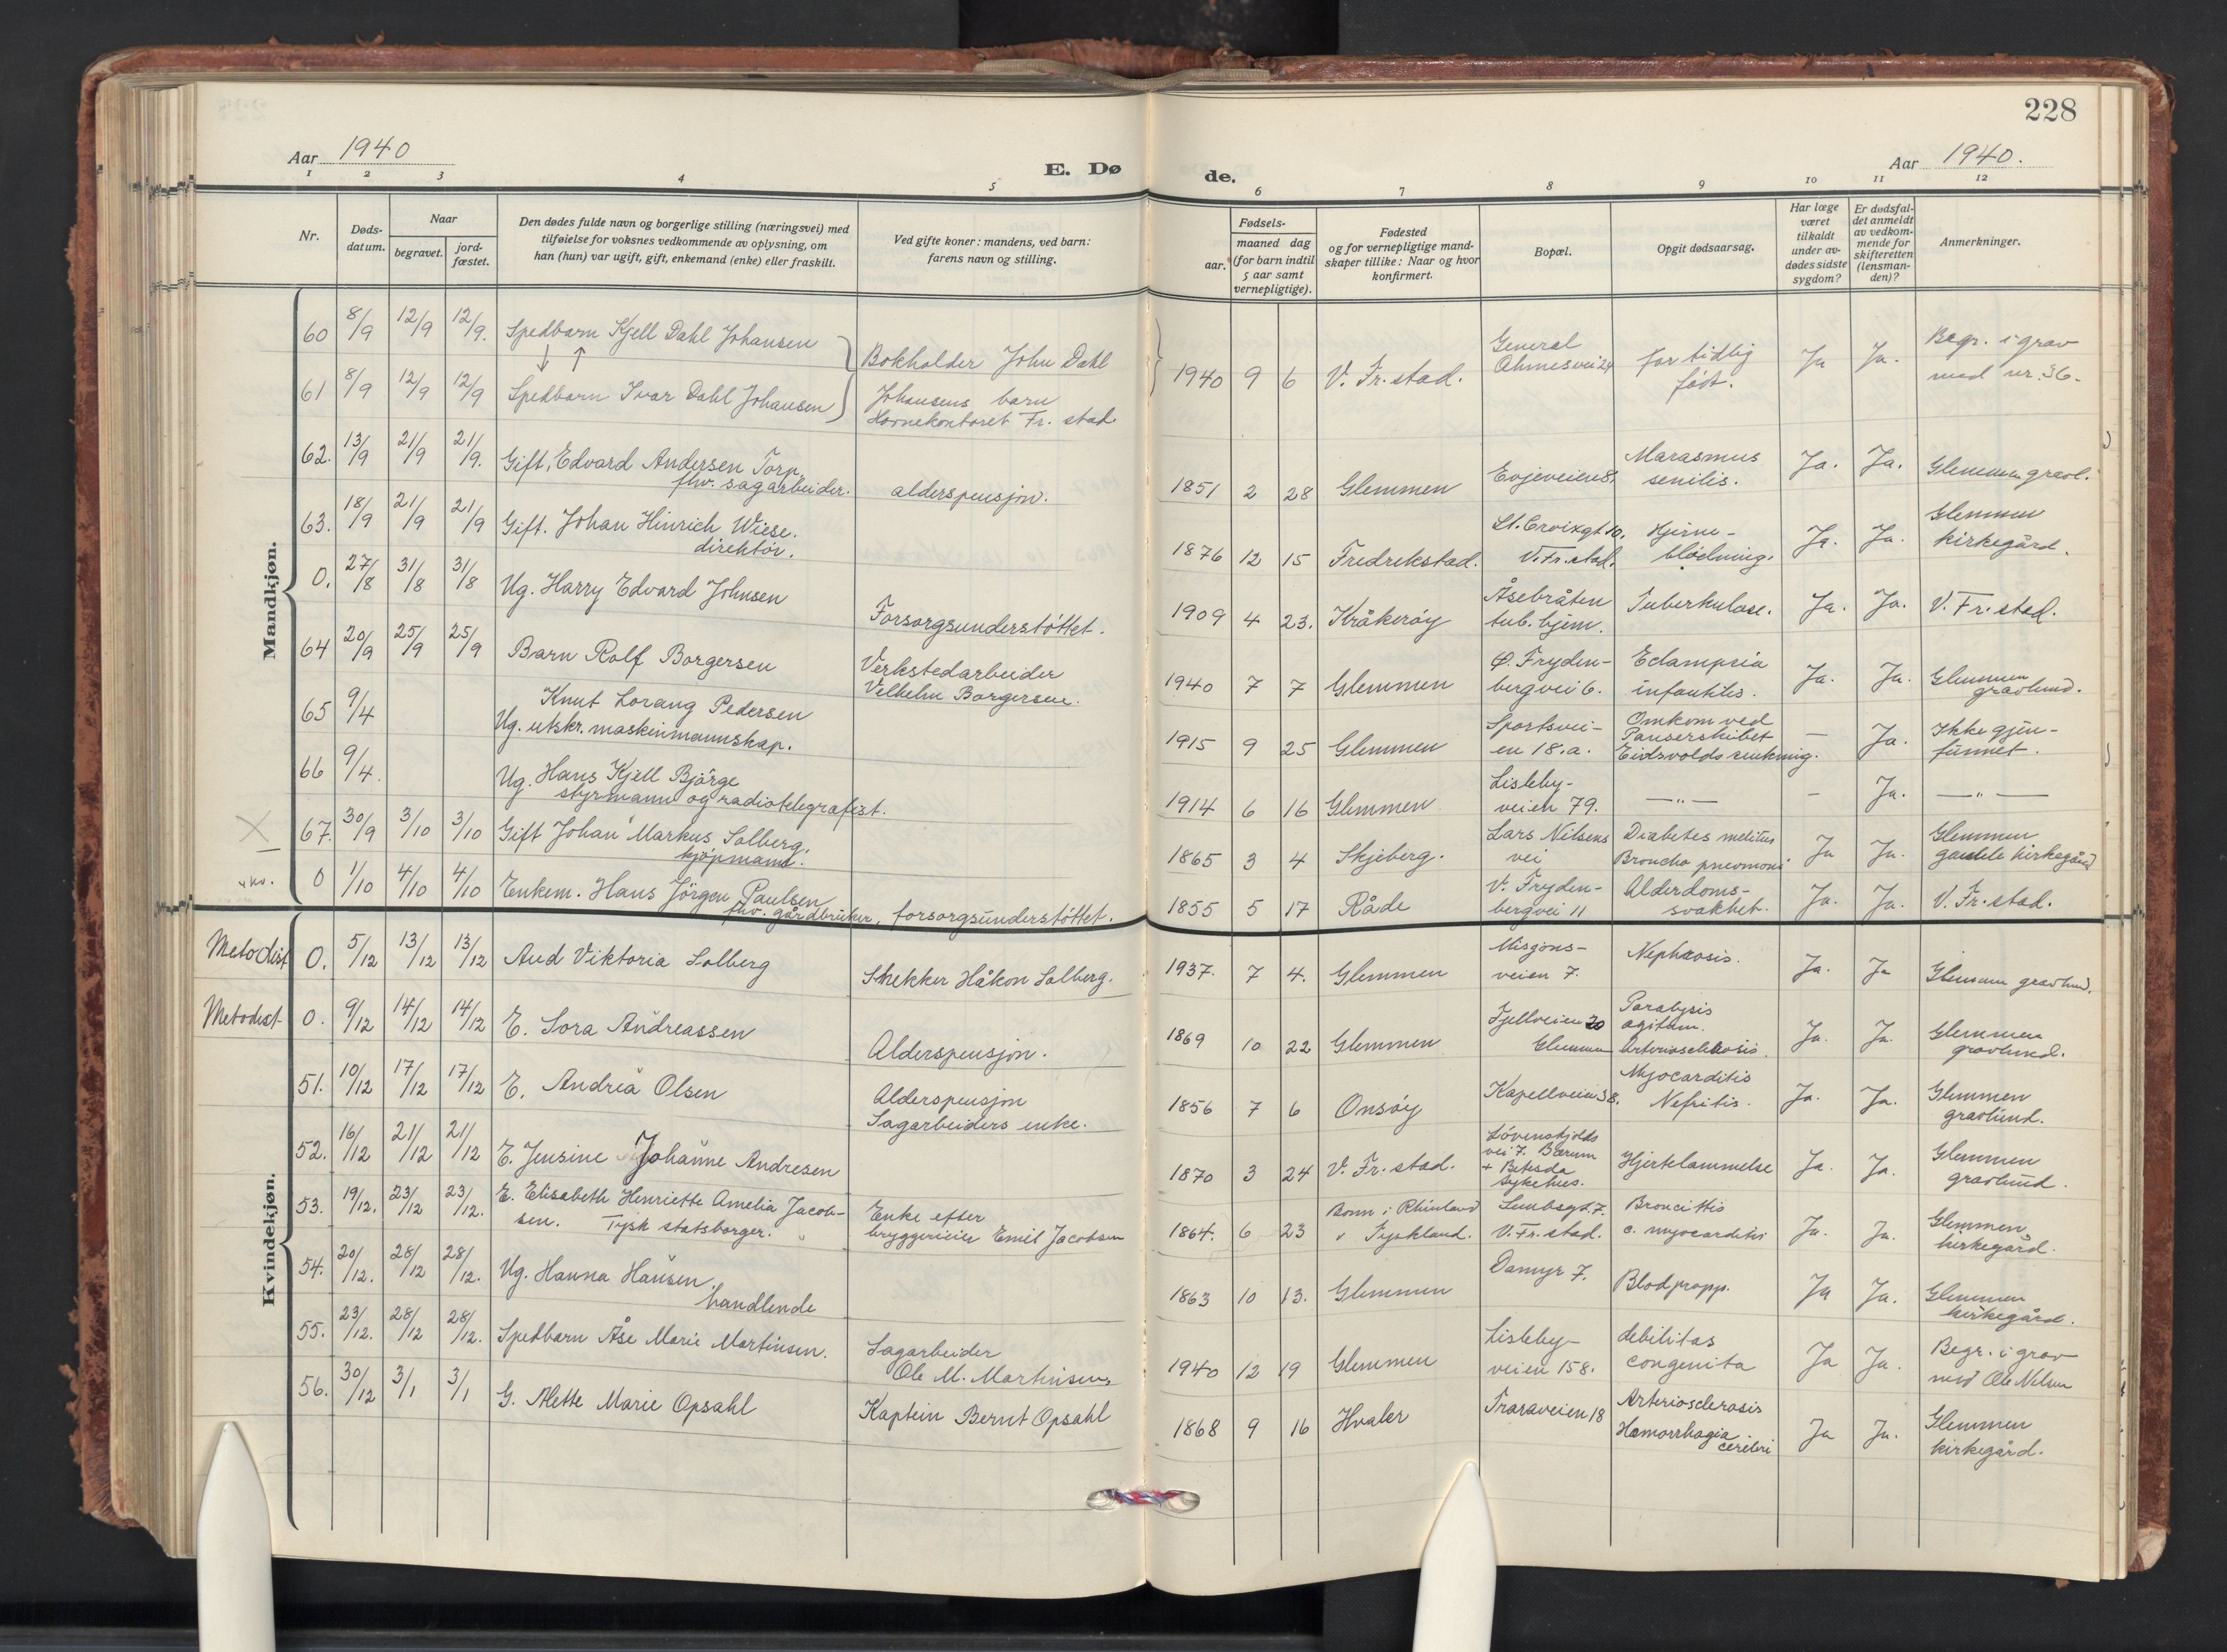 228
Aar 1940
E. Dø
de.
Aar 1940.
1 2 3 4 5 6 7 8 9 10 11 12
Nr.
Døds-
datum.
Naar
begravet.
jord-
fæstet.
Den dødes fulde navn og borgerlige stilling (næringsvei) med
tilføielse for voksnes vedkommende av oplysning, om
han (hun) var ugift, gift, enkemand (enke) eller fraskilt.
Ved gifte koner: mandens, ved barn:
farens navn og stilling.
Fødsels-
aar.
maaned dag
(for barn indtil
5 aar samt
vernepligtige).
Fødested
og for vernepligtige mand-
skaper tillike: Naar og hvor
konfirmert.
Bopæl.
Opgit dødsaarsag.
Har læge
været
tilkaldt
under av-
dødes sidste
sygdom?
Er dødsfal-
det anmeldt
av vedkom-
mende for
skifteretten
(lensman-
den)?
Anmerkninger.
Mandkjøn.
60 8/9 12/9 12/9. Spedbarn Kjell Dahl Johansen
61 8/9 12/9 12/9 Spedbarn Ivar Dahl Johansen
Bokholder John Dahl
Johansens barn
Havnekontoret Fr. stad.
1940 9 6 V. Fr. stad.
General
Ohmesvei 24
for tidlig
født.
Ja Ja.
Begr. i grav
med nr. 36.
62. 13/9 21/9 21/9. Gift, Edvard Andersen Torp,
fhv. sagarbeider. alderspensjon.
1851 2 28 Glemmen Evjeveien 8.
Marasmus
senilis.
Ja. Ja. Glemmen gravl.
63. 18/9 21/9 21/9 Gift. Johan Hinrich Wiese.
direktør.
1876 12 15 Fredrikstad.
St. Croixgt 10.
V. Fr. stad.
Hjerne-
blødning.
Ja. Ja.
Glemmen
kirkegård.
0. 27/8 31/8 31/8 Ug. Harry Edvard Johnsen
Forsorgsunderstøttet.
1909 4 23. Kråkerøy
Åsebråten
tub. hjem.
Tuberkulose. Ja. Ja. V. Fr. stad.
64 20/9 25/9 25/9 Barn Rolf Borgersen
Verkstedarbeider
Vilhelm Borgersen.
1940 7 7 Glemmen
Ø. Fryden-
bergvei 6.
Eclampsia
infantilis.
Ja. Ja.
Glemmen
gravlund.
65 9/4 Knut Lorang Pedersen
Ug. utskr. maskinmannskap.
1915 9 25 Glemmen
Sportsvei-
en 18.a.
Omkom ved
Panserskibet
Eidsvolds senkning.
— Ja.
Ikke gjen-
funnet.
66 9/4. Ug. Hans Kjell Bjørge
styrmann og radiotelegrafist.
1914 6 16 Glemmen
Lisleby-
veien 79.
—"— - Ja. —"—
X
67. 30/9 3/10 3/10 Gift Johan Markus Solberg.
kjøpmann.
1865 3 4 Skjeberg.
Lars Nilsens
vei
Diabetes melitus
Broncho pneumoni
Ja Ja.
Glemmen
gamle kirkegård
0 1/10 4/10 4/10 Enkem. Hans Jörgen Paulsen
fhv. gårdbruker, forsorgsunderstøttet.
1855 5 17 Råde
V. Fryden-
bergvei 11
Alderdoms-
svakhet.
Ja. Ja. V. Fr. stad.
Kvindekjøn.
Metodist 0. 5/12 13/12 13/12 Aud Viktoria Solberg
Snekker Håkon Solberg.
1937. 7 4. Glemmen
Misjons-
veien 7.
Nephrosis. Ja. Ja Glemmen gravlund.
Metodist 0. 9/12 14/12 14/12 E. Lora Andreassen
Alderspensjon.
1869 10 22 Glemmen
Fjellveien 20
Glemmen
Paralysis
agitam.
Arteriosclerosis.
Ja. Ja.
Glemmen
gravlund.
51. 10/12 17/12 17/12 E. Andrea Olsen
Alderspensjon
Sagarbeiders enke.
1856 7 6 Onsøy Kapellveien 38.
Myocarditis
Nefritis.
Ja. Ja.
Glemmen
gravlund.
52. 16/12 21/12 21/12 E. Jensine Johanne Andresen
1870 3 24 V. Fr. stad.
Løvenskjolds
vei 7. Bærum
+ Betesda
sykehus.
Hjertelammelse Ja. Ja.
Glemmen
gravlund.
53. 19/12. 23/12 23/12. E. Elisabeth Henriette Amelia Jacob-
sen. Tysk statsborger.
Enke efter
bryggerieier Emil Jacobsen
1864. 6 23
Bonn i Rhinland
Tyskland.
Lumbsgt. 7.
V. Fr. stad.
Broncittis
c. myocarditis
Ja. Ja.
Glemmen
kirkegård.
54. 20/12. 28/12 28/12. Ug. Hanna Hansen.
handlende
1863 10 13. Glemmen Damyr 7. Blodpropp. Ja Ja.
Glemmen
kirkegård.
55. 23/12. 28/12 28/12. Spedbarn Åse Marie Martinsen.
Sagarbeider
Ole M. Martinsen
1940 12 19 Glemmen
Lisleby-
veien 158.
debilitas
congenita
Ja Ja.
Begr. i grav
med Ole Nilsen
56. 30/12 3/1 3/1 G. Alette Marie Opsahl
Kaptein Bernt Opsahl
1868 9 16 Hvaler Traraveien 18
Arteriosclerosis
Hæmorrhagia
cerebri
Ja Ja.
Glemmen
kirkegård.